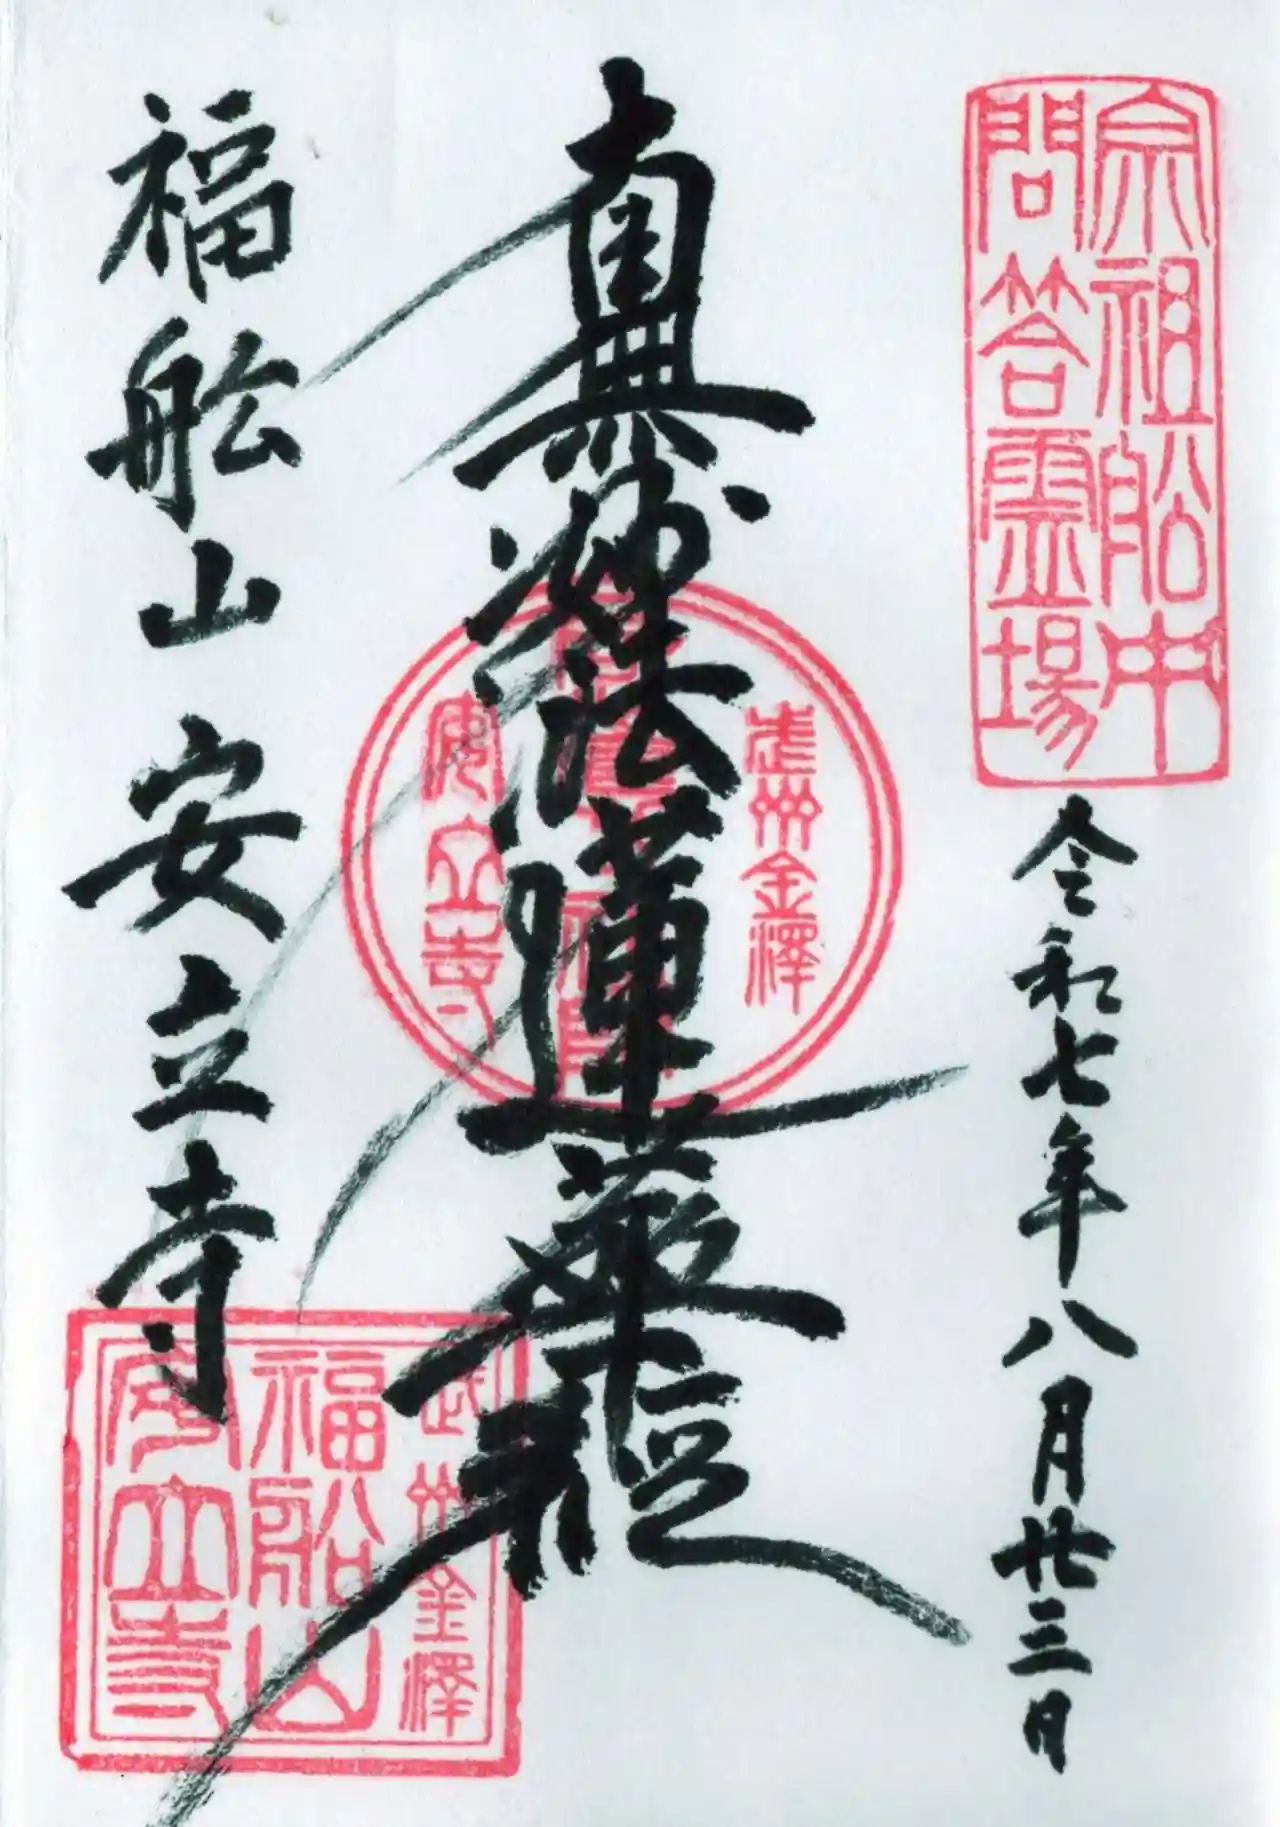 宗祖舩中
問答霊場
令和七年八月廿三日
南無妙法蓮華經
武州金澤
安立寺
福舩山 安立寺
武州金澤
福舩山
安立寺